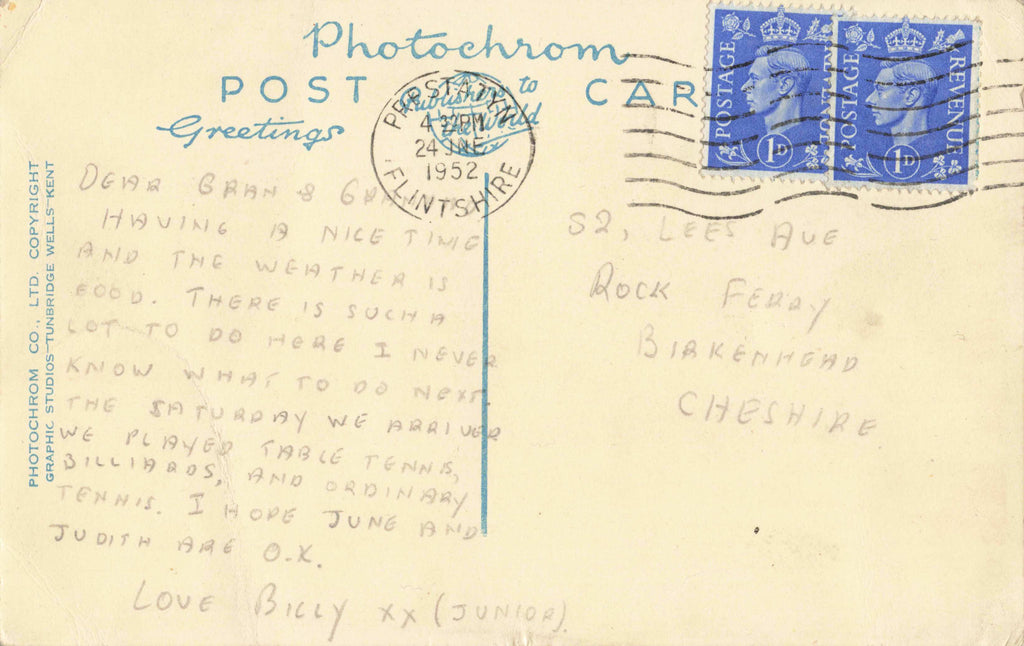 Photochrom
POST CAR
Greetings
Publishers to
the World
PRESTATYN
4 32PM
24 JNE
1952
FLINTSHIRE
POSTAGE
1D
POSTAGE REVENUE
1D
PHOTOCHROM CO., LTD. COPYRIGHT
GRAPHIC STUDIOS-TUNBRIDGE WELLS-KENT
DEAR GRAN & GRAN
HAVING A NICE TIME
AND THE WEATHER IS
GOOD. THERE IS SUCH A
LOT TO DO HERE I NEVER
KNOW WHAT TO DO NEXT.
THE SATURDAY WE ARRIVED
WE PLAYED TABLE TENNIS,
BILLIARDS, AND ORDINARY
TENNIS. I HOPE JUNE AND
JUDITH ARE O.K.
LOVE BILLY XX (JUNIOR).
52, LEES AVE
ROCK FERRY
BIRKENHEAD
CHESHIRE.